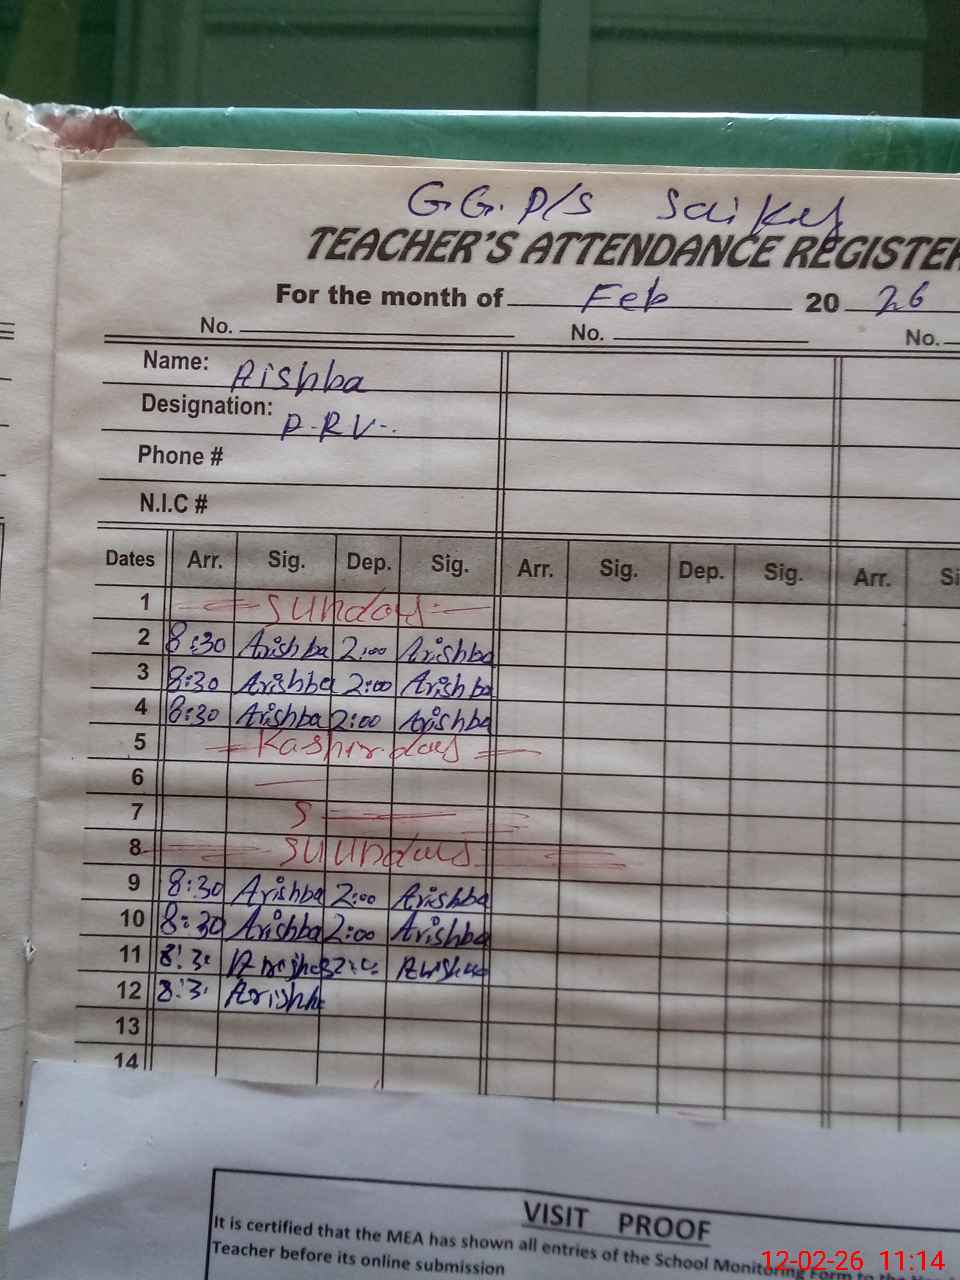 G.G. P/S Saikes
TEACHER'S ATTENDANCE REGISTER
For the month of Feb 20 26
No. No. No.
Name: Aishba
Designation: P.R.V-.
Phone #
N.I.C #
Dates Arr. Sig. Dep. Sig. Arr. Sig. Dep. Sig. Arr.
1 Sunday
2 8:30 Arishba 2:00 Arishba
3 8:30 Arishba 2:00 Arishba
4 8:30 Arishba 2:00 Arishba
5 Kashir day
6
7 S
8 Suundays
9 8:30 Arishba 2:00 Arishba
10 8:30 Arishba 2:00 Arishba
11 8:3
12 8:3
13
14
VISIT PROOF
It is certified that the MEA has shown all entries of the School Monitoring Form to the
Teacher before its online submission
12-02-26 11:14